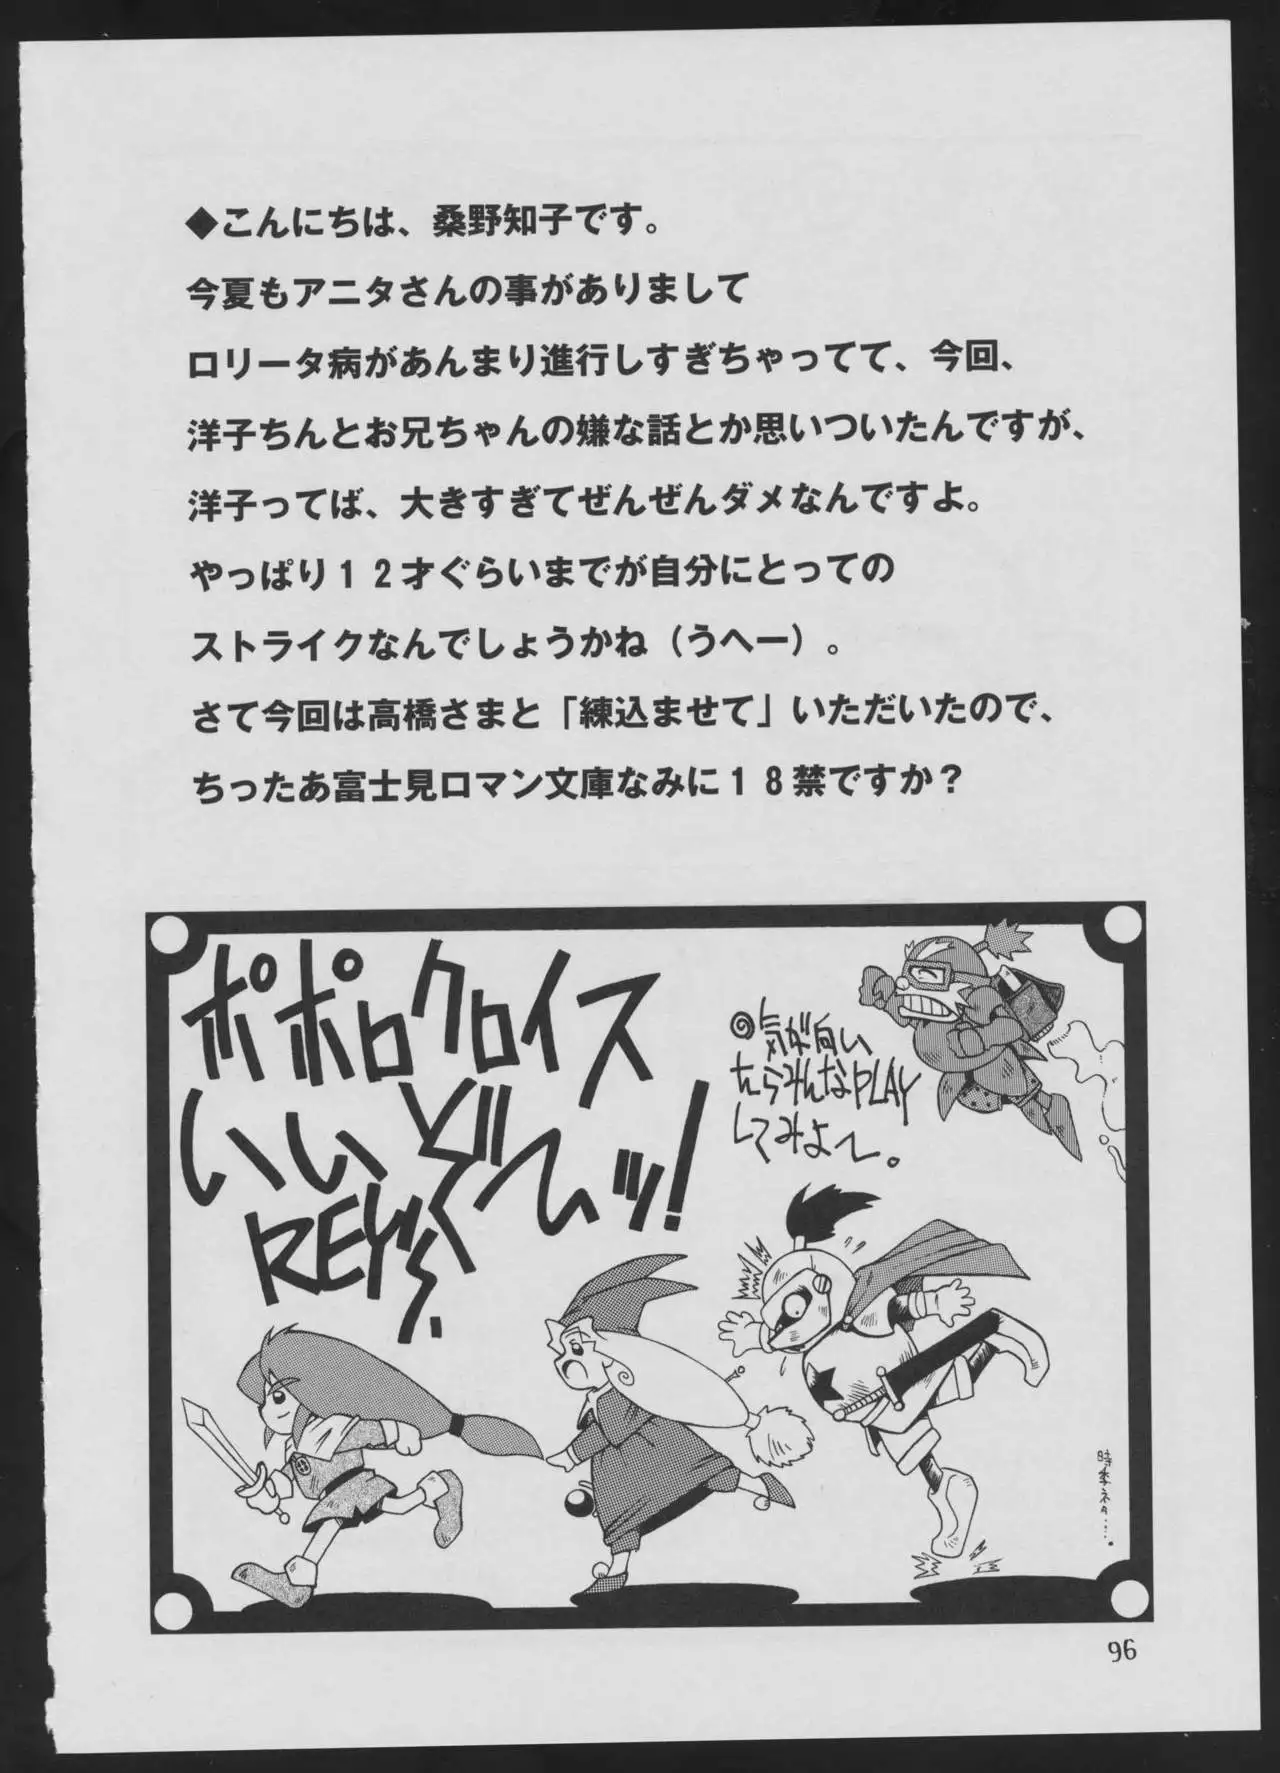 ◆こんにちは、桑野知子です。
今夏もアニタさんの事がありまして
ロリータ病があんまり進行しすぎちゃってて、今回、
洋子ちんとお兄ちゃんの嫌な話とか思いついたんですが、
洋子ってば、大きすぎてぜんぜんダメなんですよ。
やっぱり１２才ぐらいまでが自分にとっての
ストライクなんでしょうかね（うへー）。
さて今回は高橋さまと「練込ませて」いただいたので、
ちったあ富士見ロマン文庫なみに１８禁ですか？
ポポロクロイス
いいぞーッ！
REY
気が向い
たらみんなPLAY
してみよー。
時季ネタ…。
96